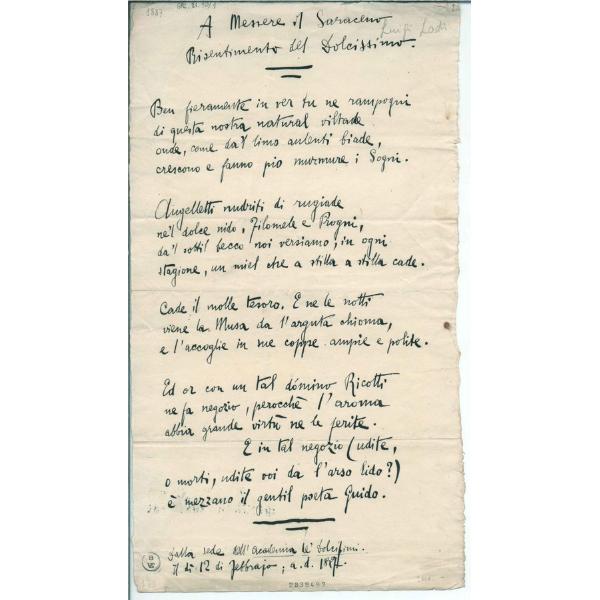 1887
A Messere il Saraceno
Luigi Lodi
Risentimento del Dolcissimo.
Ben fieramente in ver tu ne rampogni
di questa nostra natural viltade
onde, come da 'l limo aulenti biade,
crescono e fanno pio murmure i Sogni.
Augelletti nudriti di rugiade
ne 'l dolce nido, Filomele e Progni,
da 'l sottil becco noi versiamo, in ogni
stagione, un miel che a stilla a stilla cade.
Cade il molle tesoro. E ne le notti
viene la Musa da l'arguta chioma,
e l'accoglie in sue coppe ampie e polite.
Ed or con un tal dómino Ricotti
ne fa negozio, perocchè l'aroma
abbia grande virtù ne le ferite.
E in tal negozio (udite,
o morti, udite voi da l'arso lido?)
è mezzano il gentil poeta Guido.
Dalla sede dell'Academia de' Dolcissimi.
Il dì 12 di febbrajo; a.d. 1887.